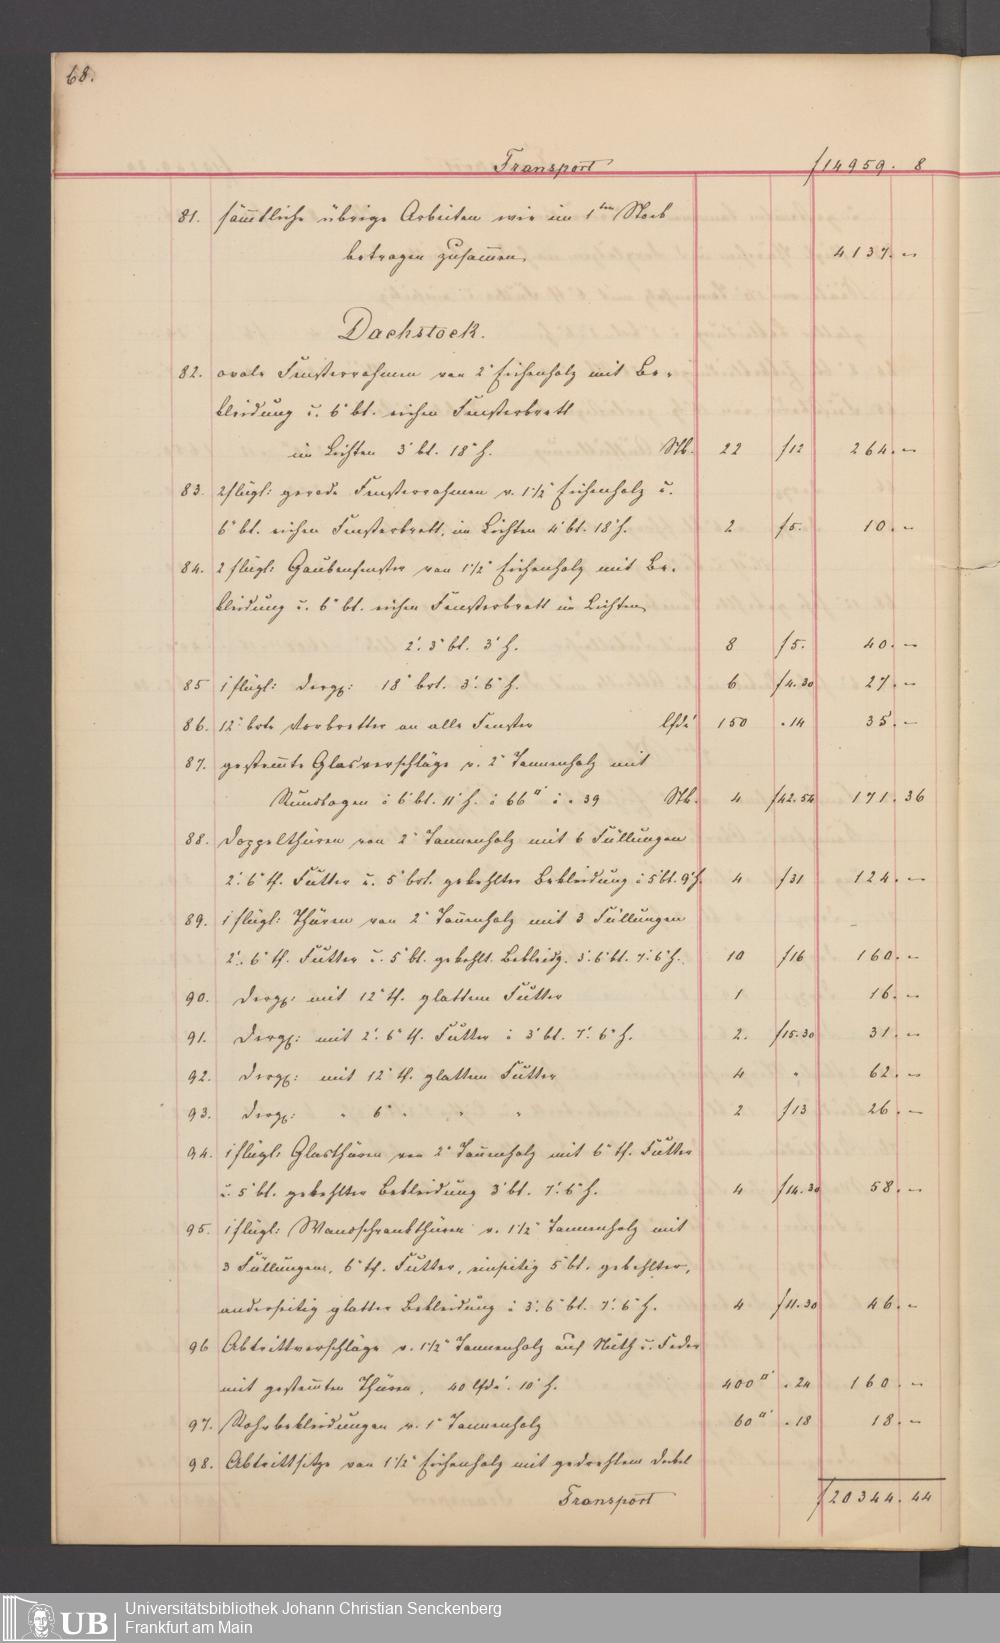 68.
Transport f 14959. 8
81. sämtliche übrige Arbeiten wie im 1ten Stock
betragen zusammen 4137. –
Dachstock.
82. ovale Fensterrahmen von 2" Eichenholz mit Be-
kleidung u. 6" bt. eichen Fensterbrett
im Lichten 3' bt. 18" h. Stk. 22 f 12 264. –
83. 2flügl: gerade Fensterrahmen v. 1 1/2" Eichenholz u.
6" bt. eichen Fensterbrett, im Lichten 4' bt. 18" h. 2 f 5. 10. –
84. 2 flügl: Gaubenfenster von 1 1/2" Eichenholz mit Be-
kleidung u. 6" bt. eichen Fensterbrett im Lichten
2'. 3" bt. 3' h. 8 f 5. 40. –
85 1 flügl: dergl: 18" brt. 3'. 6" h. 6 f 4.30 27. –
86. 12" brte Vorbretter an alle Fenster lfde' 150 „ 14 35. –
87. gestemte Glasverschläge v. 2" Tannenholz mit
Rundbogen à 6' bt. 11' h. à 66 □' à „ 39 Stk. 4 f 42.54 171. 36
88. Doppelthüren von 2" Tannenholz mit 6 Füllungen
2'. 6" tf. Futter u. 5" brt. gekehlter Bekleidung à 5' bt. 9' h. 4 f 31 124. –
89. 1 flügl: Thüren von 2" Tanenholz mit 3 Füllungen
2'. 6" tf. Futter u. 5" bt. gekehlt. Bekleidg. 3'. 6" bt. 7'. 6" h. 10 f 16 160. –
90. dergl: mit 12" tf. glattem Futter 1 16. –
91. dergl: mit 2'. 6" tf. Futter à 3' bt. 7'. 6" h. 2. f 15.30 31. –
92. dergl: mit 12" tf. glattem Futter 4 „ 62. –
93. dergl: „ 6" „ „ „ 2 f 13 26. –
94. 1 flügl: Glasthüren von 2" Tanenholz mit 6" tf. Futter
u. 5" bt. gekehlter Bekleidung 3' bt. 7'. 6" h. 4 f 14.30 58. –
95. 1 flügl: Wandschrankthüren v. 1 1/2" Tannenholz mit
3 Füllungen, 6" tf. Futter, einseitig 5" bt. gekehlter,
anderseitig glatter Bekleidung à 3'. 6" bt. 7'. 6" h. 4 f 11.30 46. –
96 Abtrittverschläge v. 1 1/2" Tannenholz auf Nuth u. Feder
mit gestemten Thüren, 40 lfde'. 10' h. 400 □' „ 24 160. –
97. Rohrbekleidungen v. 1" Tannenholz 60 □' „ 18 18. –
98. Abtrittsitze von 1 1/2" Eichenholz mit gedrehtem Dekel
Transport f 20344. 44
UB
Universitätsbibliothek Johann Christian Senckenberg
Frankfurt am Main